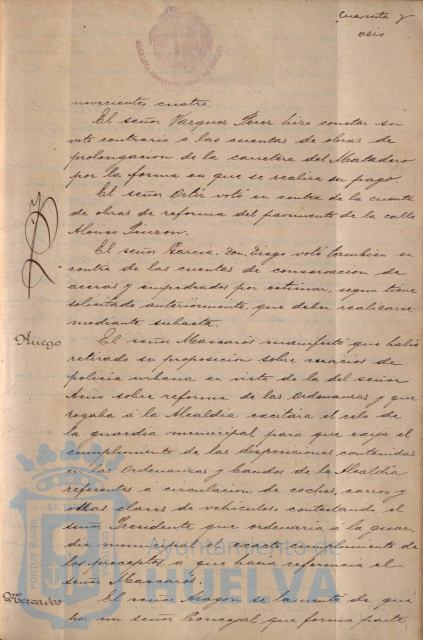 Cuarenta y
seis
novecientos cuatro.
El señor Vazquez Perez hizo constar su
voto contrario á las cuentas de obras de
prolongacion de la carretera del Matadero
por la forma en que se realiza su pago.
El señor Ortiz votó en contra de la cuenta
de obras de reforma del pavimento de la calle
Alonso Pinzon.
El señor Garcia Don Diego votó tambien en
contra de las cuentas de conservacion de
aceras y empedrados por estimar, segun tiene
solicitado anteriormente, que deben realizarse
mediante subasta.
Ruego
El señor Mascarós manifestó que habia
retirado su proposicion sobre servicios de
policia urbana en vista de la del señor
sobre reforma de las Ordenanzas y que
rogaba á la Alcaldia excitára el celo de
la guardia municipal para que exija el
cumplimiento de las disposiciones contenidas
en las Ordenanzas y bandos de la Alcaldia
referentes á circulacion de coches, carros y
otras clases de vehiculos, contestando el
señor Presidente que ordenaria á la guar-
dia municipal el exacto cumplimiento de
los preceptos á que hacia referencia el
señor Mascarós.
Mercados
El señor Aragon se lamentó de que
por un señor Concejal que forma parte
Ayuntamiento de
HUELVA